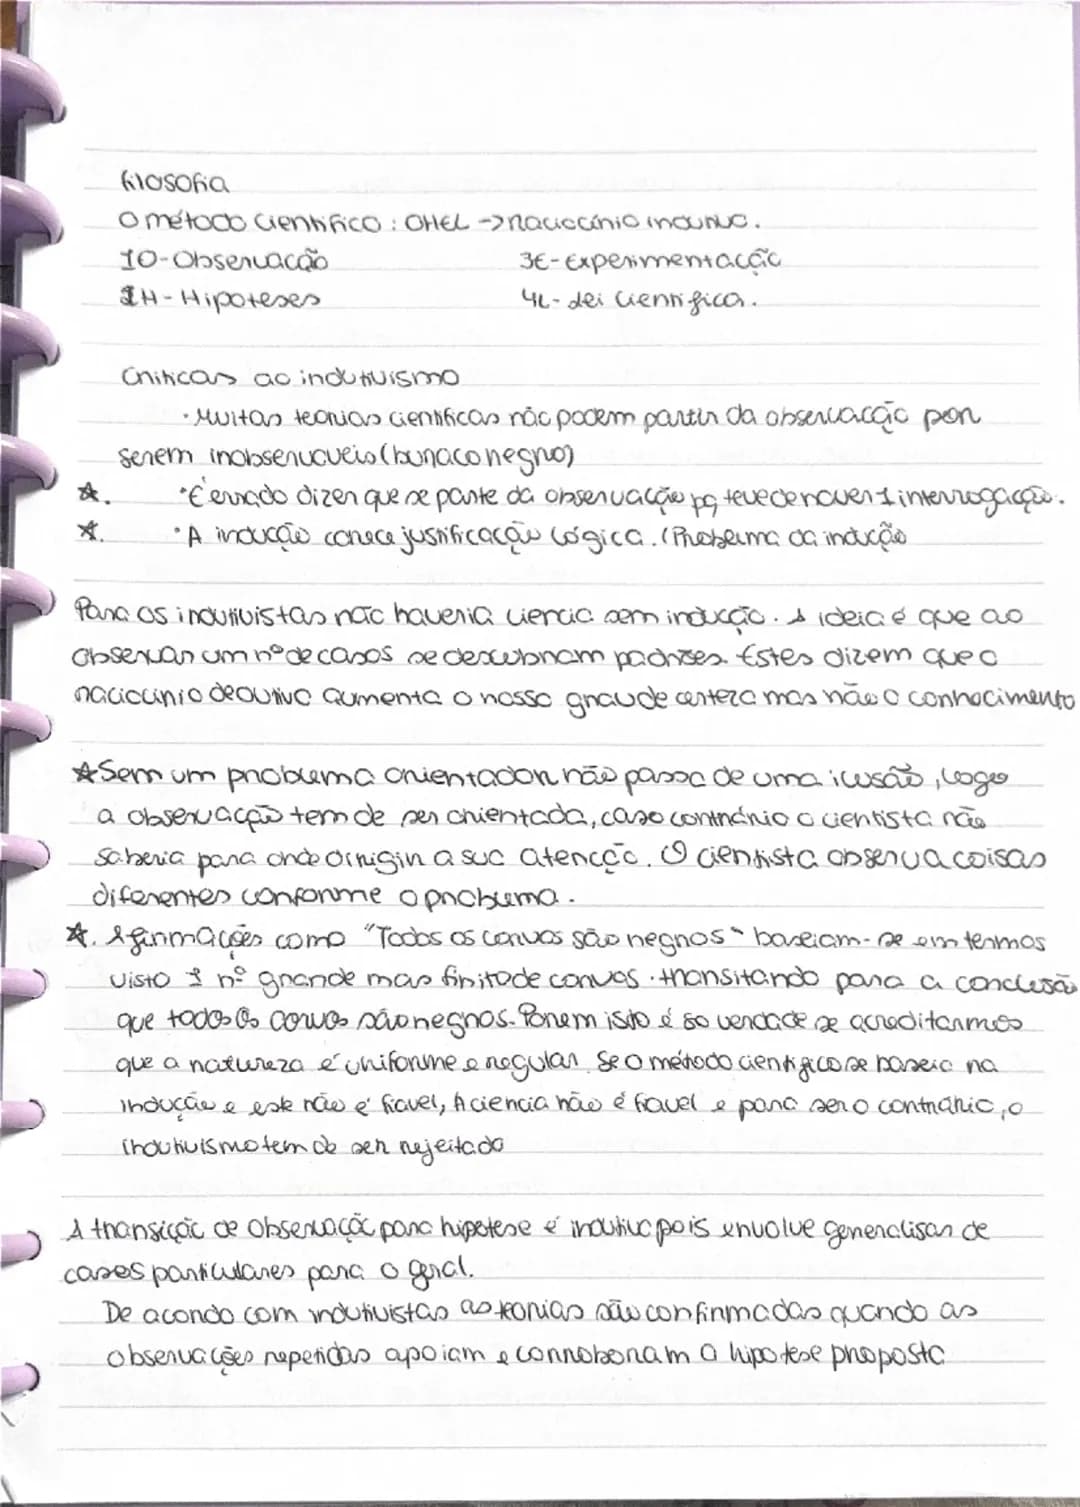 filosofia
O método científico : OHEL -> raciocínio indutivo.
1O-Observação 3E-Experimentação
2H-Hipoteses 4L-Lei científica.
Críticas ao indutivismo
· Muitas teorias científicas não podem partir da observação por
serem inobservaveis (buraco negro)
☆. · É errado dizer que se parte da observação pq teve de haver 1 interrogação.
☆. · A indução carece justificação lógica. (Problema da indução
Para os indutivistas não haveria ciencia sem indução. A ideia é que ao
observar um nº de casos se descubram padrões. Estes dizem que o
raciocinio dedutivo aumenta o nosso grau de certeza mas não o conhecimento
☆ Sem um problema orientador não passa de uma ilusão, logo
a observação tem de ser orientada, caso contrário o cientista não
saberia para onde dirigir a sua atenção. O cientista observa coisas
diferentes conforme o problema.
☆. Afirmações como "Todos os corvos são negros" baseiam-se em termos
visto 1 nº grande mas finito de corvos. transitando para a conclusão
que todos os corvos são negros. Porem isto é so verdade se acreditarmos
que a natureza é uniforme e regular. Se o método cientifico se baseia na
indução e este não é fiavel, A ciencia não é fiavel e para ser o contrário, o
indutivismo tem de ser rejeitado
A transição de observação para hipotese é indutiva pois envolve generalisar de
casos particulares para o geral.
De acordo com indutivistas as teorias são confirmadas quando as
observações repetidas apoiam e corroboram a hipotese proposta